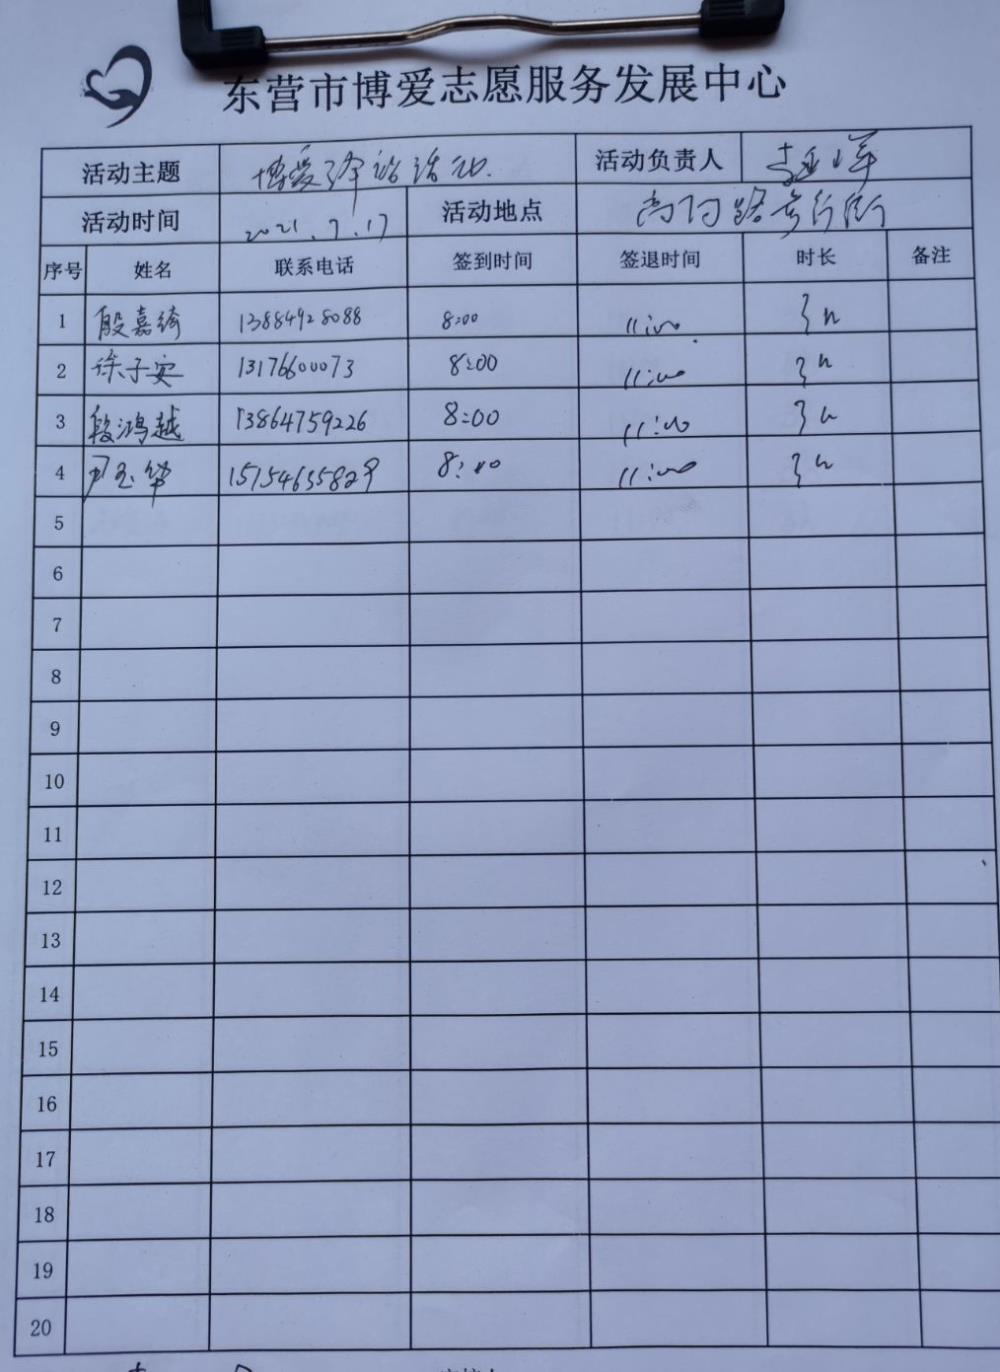 东营市博爱志愿服务发展中心
活动主题 博爱 活动 活动负责人
活动时间 2021.7.17 活动地点 路步行街
序号 姓名 联系电话 签到时间 签退时间 时长 备注
1 殷嘉绮 13884928088 8:00 11:00 3h
2 徐子安 13176600073 8:00 11:00 3h
3 段鸿越 13864759226 8:00 11:00 3h
4 尹玉华 15154635829 8:00 11:00 3h
5
6
7
8
9
10
11
12
13
14
15
16
17
18
19
20